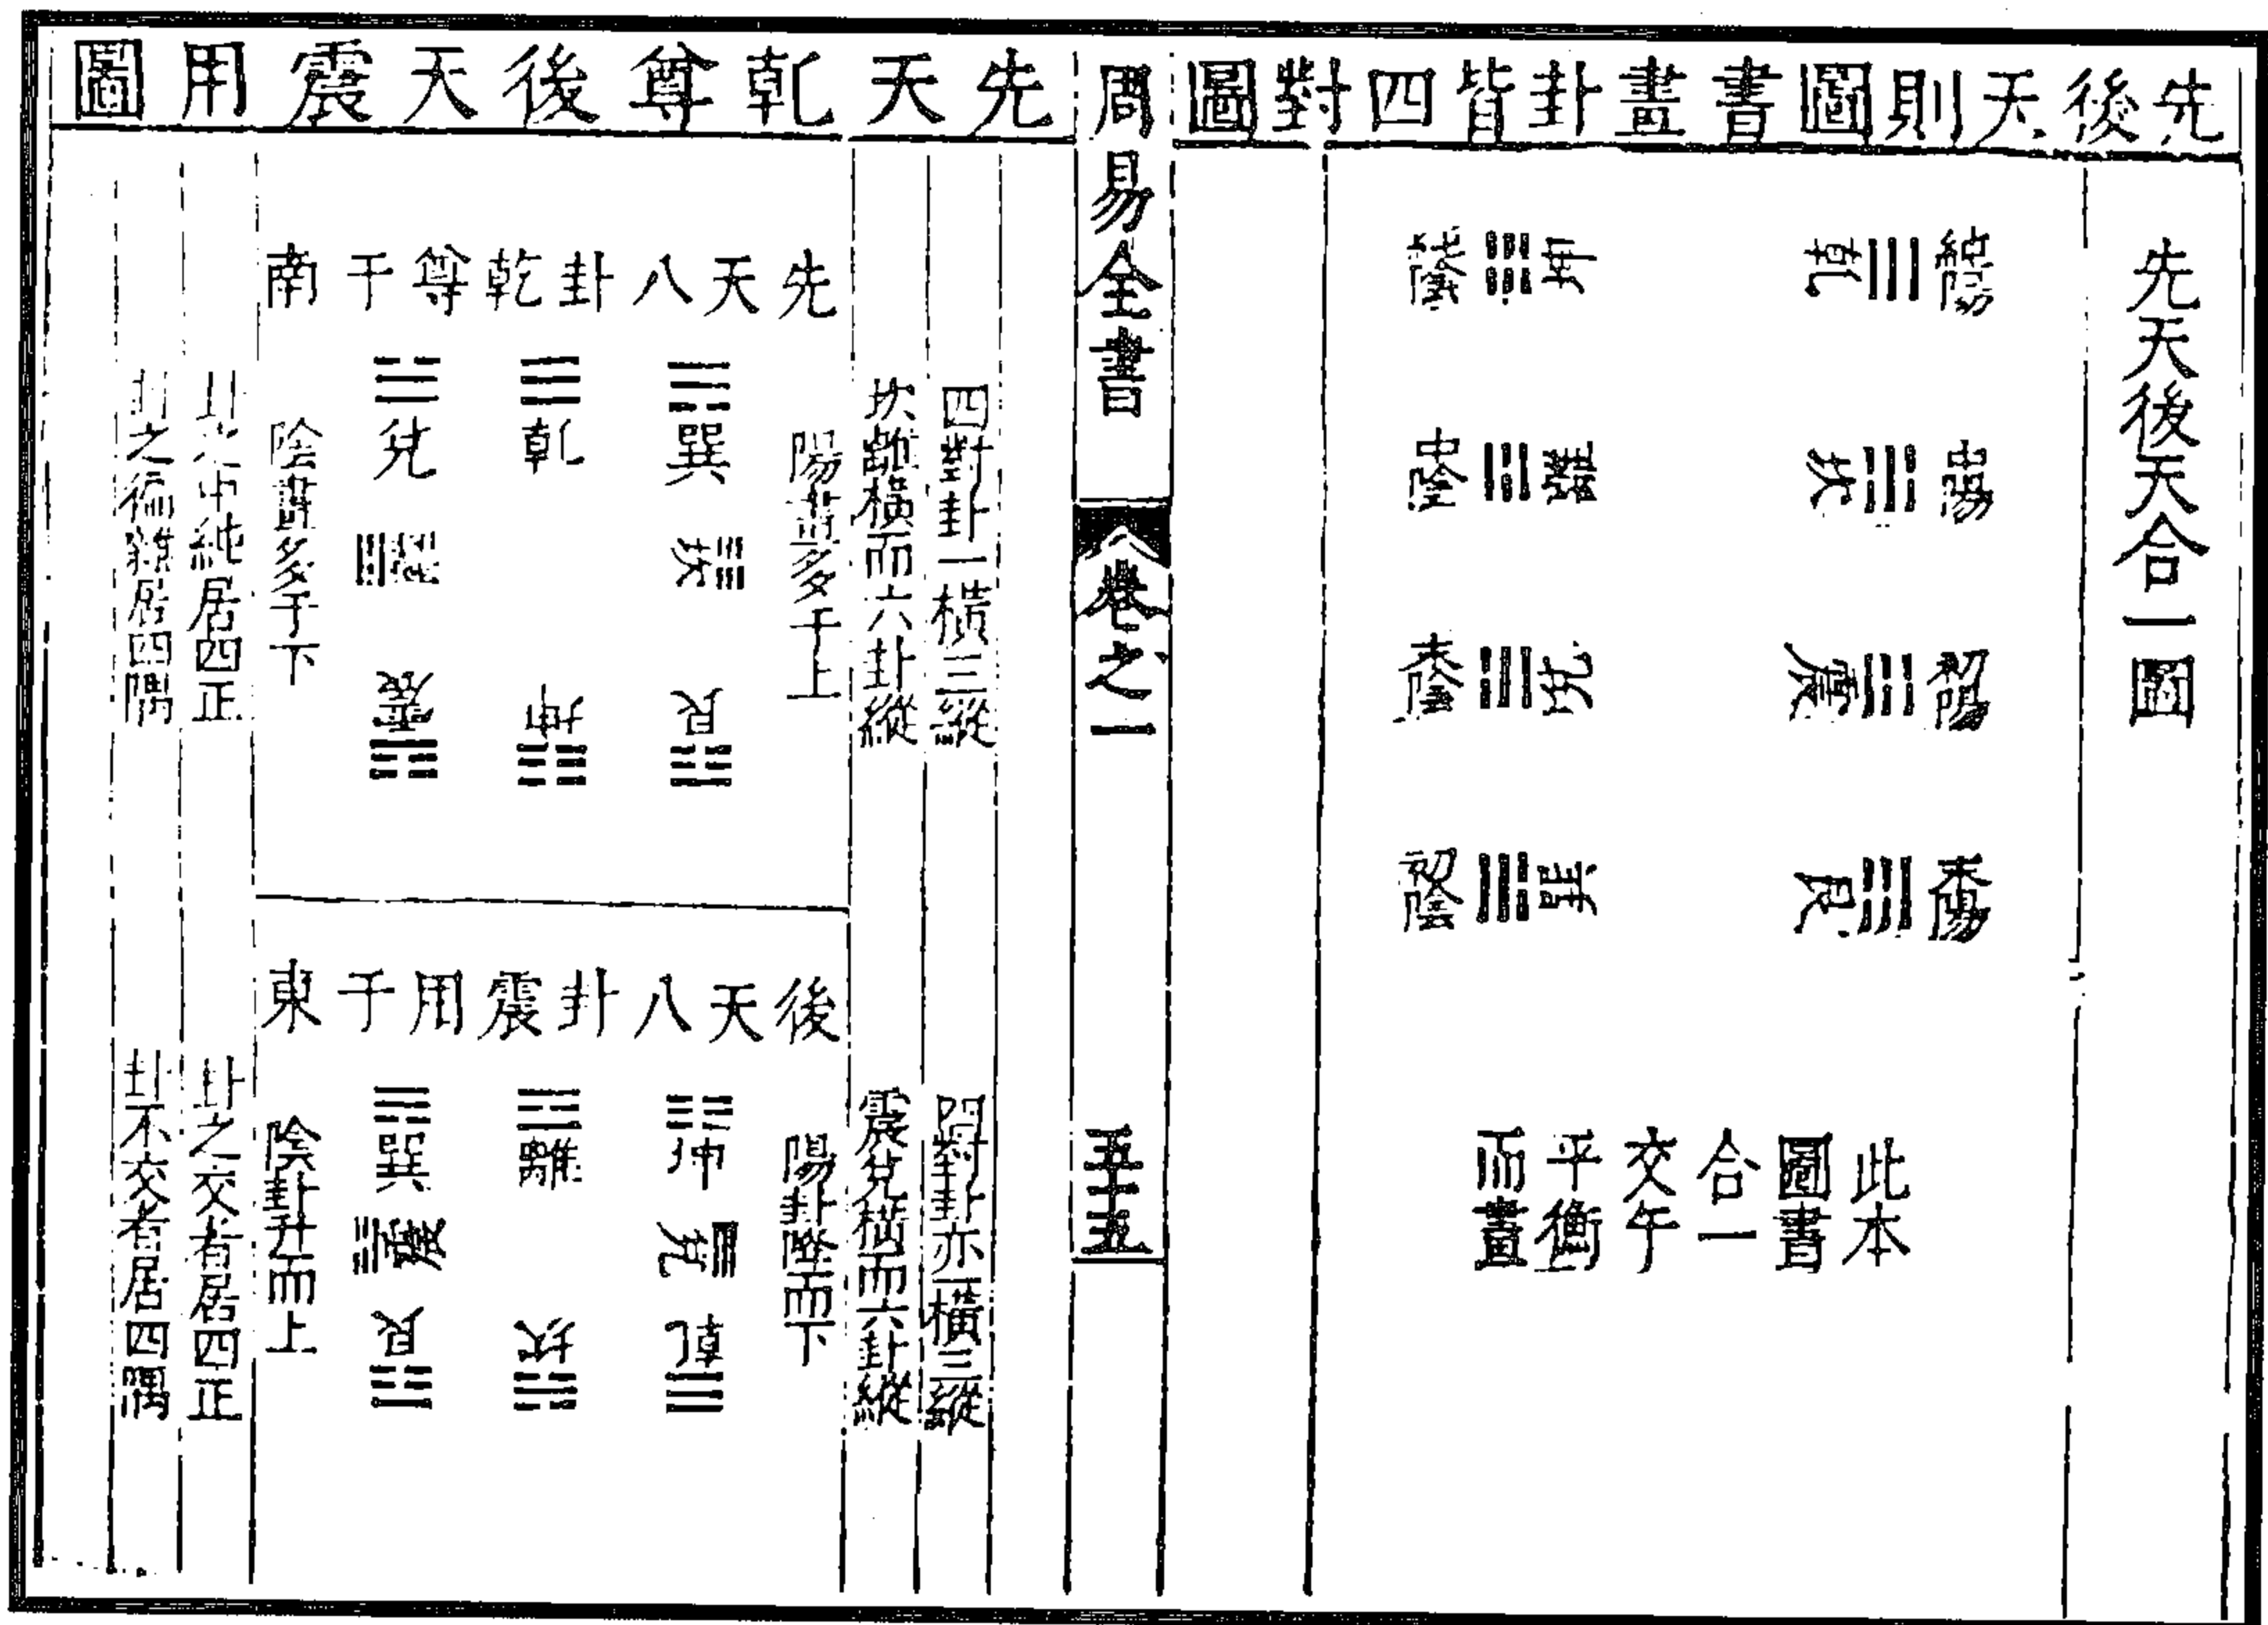 先後天則圖書畫卦皆四對圖
先天後天合一圖
純陽
乾
中陽
坎
初陽
震
末陽
艮
坤
純陰
離
中陰
兌
末陰
巽
初陰
此本
圖書
合一
交午
平衡
而畫
周易全書
卷之一
五十五
先天乾尊後天震用圖
四對卦一橫三縱
坎離橫而六卦縱
先天八卦乾尊于南
陽畫多于上
巽
乾
兌
坎
離
艮
坤
震
陰畫多于下
卦之中純居四正
卦之偏雜居四隅
四對卦亦一橫三縱
震兌橫而六卦縱
後天八卦震用于東
陽卦降而下
坤
離
巽
兌
震
乾
坎
艮
陰卦升而上
卦之交者居四正
卦不交者居四隅